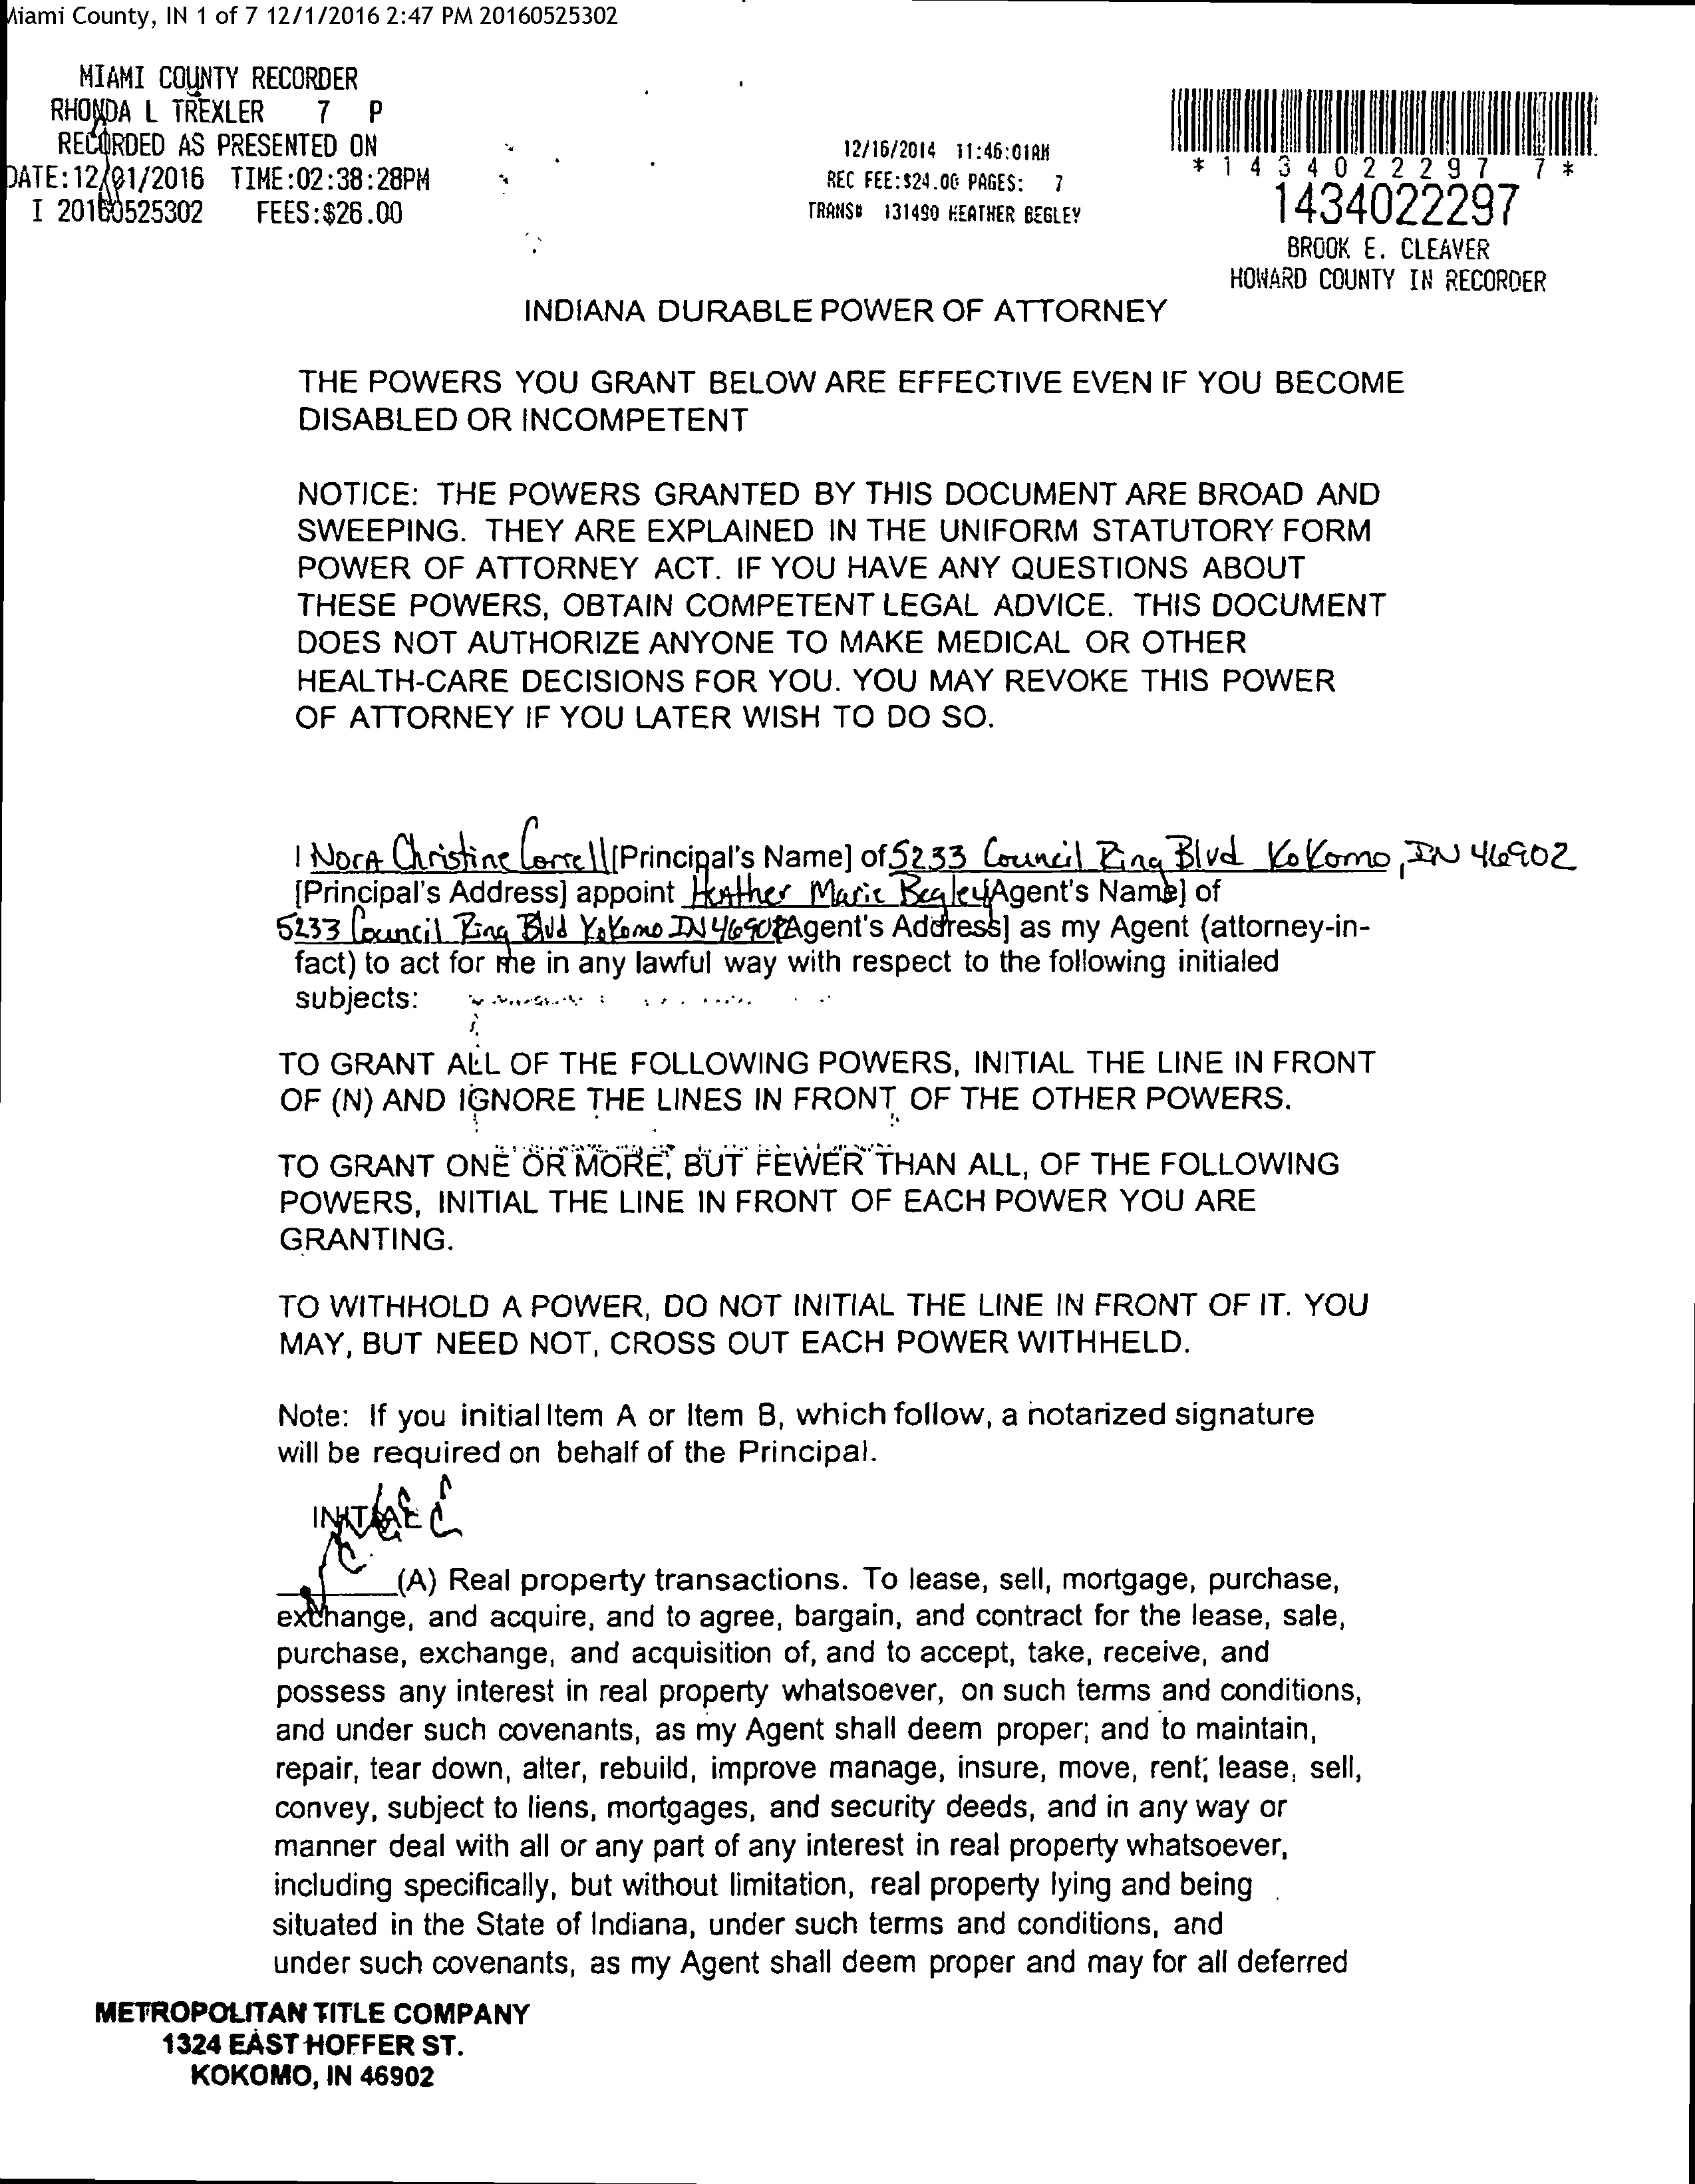 Miami County, IN 1 of 7 12/1/2016 2:47 PM 20160525302
MIAMI COUNTY RECORDER
RHONDA L TREXLER 7 P
RECORDED AS PRESENTED ON
DATE:12/01/2016 TIME:02:38:28PM
I 20160525302 FEES:$26.00
12/16/2014 11:46:01AM
REC FEE:$24.00 PAGES: 7
TRANS# 131490 HEATHER BEGLEY
*1434022297 7*
1434022297
BROOK E. CLEAVER
HOWARD COUNTY IN RECORDER
INDIANA DURABLE POWER OF ATTORNEY
THE POWERS YOU GRANT BELOW ARE EFFECTIVE EVEN IF YOU BECOME
DISABLED OR INCOMPETENT
NOTICE: THE POWERS GRANTED BY THIS DOCUMENT ARE BROAD AND
SWEEPING. THEY ARE EXPLAINED IN THE UNIFORM STATUTORY FORM
POWER OF ATTORNEY ACT. IF YOU HAVE ANY QUESTIONS ABOUT
THESE POWERS, OBTAIN COMPETENT LEGAL ADVICE. THIS DOCUMENT
DOES NOT AUTHORIZE ANYONE TO MAKE MEDICAL OR OTHER
HEALTH-CARE DECISIONS FOR YOU. YOU MAY REVOKE THIS POWER
OF ATTORNEY IF YOU LATER WISH TO DO SO.
I Nora Christine Correll [Principal's Name] of 5233 Council Ring Blvd Kokomo, IN 46902
[Principal's Address] appoint Heather Marie Begley [Agent's Name] of
5233 Council Ring Blvd Kokomo IN 46902 [Agent's Address] as my Agent (attorney-in-
fact) to act for me in any lawful way with respect to the following initialed
subjects:
TO GRANT ALL OF THE FOLLOWING POWERS, INITIAL THE LINE IN FRONT
OF (N) AND IGNORE THE LINES IN FRONT OF THE OTHER POWERS.
TO GRANT ONE OR MORE, BUT FEWER THAN ALL, OF THE FOLLOWING
POWERS, INITIAL THE LINE IN FRONT OF EACH POWER YOU ARE
GRANTING.
TO WITHHOLD A POWER, DO NOT INITIAL THE LINE IN FRONT OF IT. YOU
MAY, BUT NEED NOT, CROSS OUT EACH POWER WITHHELD.
Note: If you initial Item A or Item B, which follow, a notarized signature
will be required on behalf of the Principal.
INITIAL
(A) Real property transactions. To lease, sell, mortgage, purchase,
exchange, and acquire, and to agree, bargain, and contract for the lease, sale,
purchase, exchange, and acquisition of, and to accept, take, receive, and
possess any interest in real property whatsoever, on such terms and conditions,
and under such covenants, as my Agent shall deem proper; and to maintain,
repair, tear down, alter, rebuild, improve manage, insure, move, rent; lease, sell,
convey, subject to liens, mortgages, and security deeds, and in any way or
manner deal with all or any part of any interest in real property whatsoever,
including specifically, but without limitation, real property lying and being
situated in the State of Indiana, under such terms and conditions, and
under such covenants, as my Agent shall deem proper and may for all deferred
METROPOLITAN TITLE COMPANY
1324 EAST HOFFER ST.
KOKOMO, IN 46902